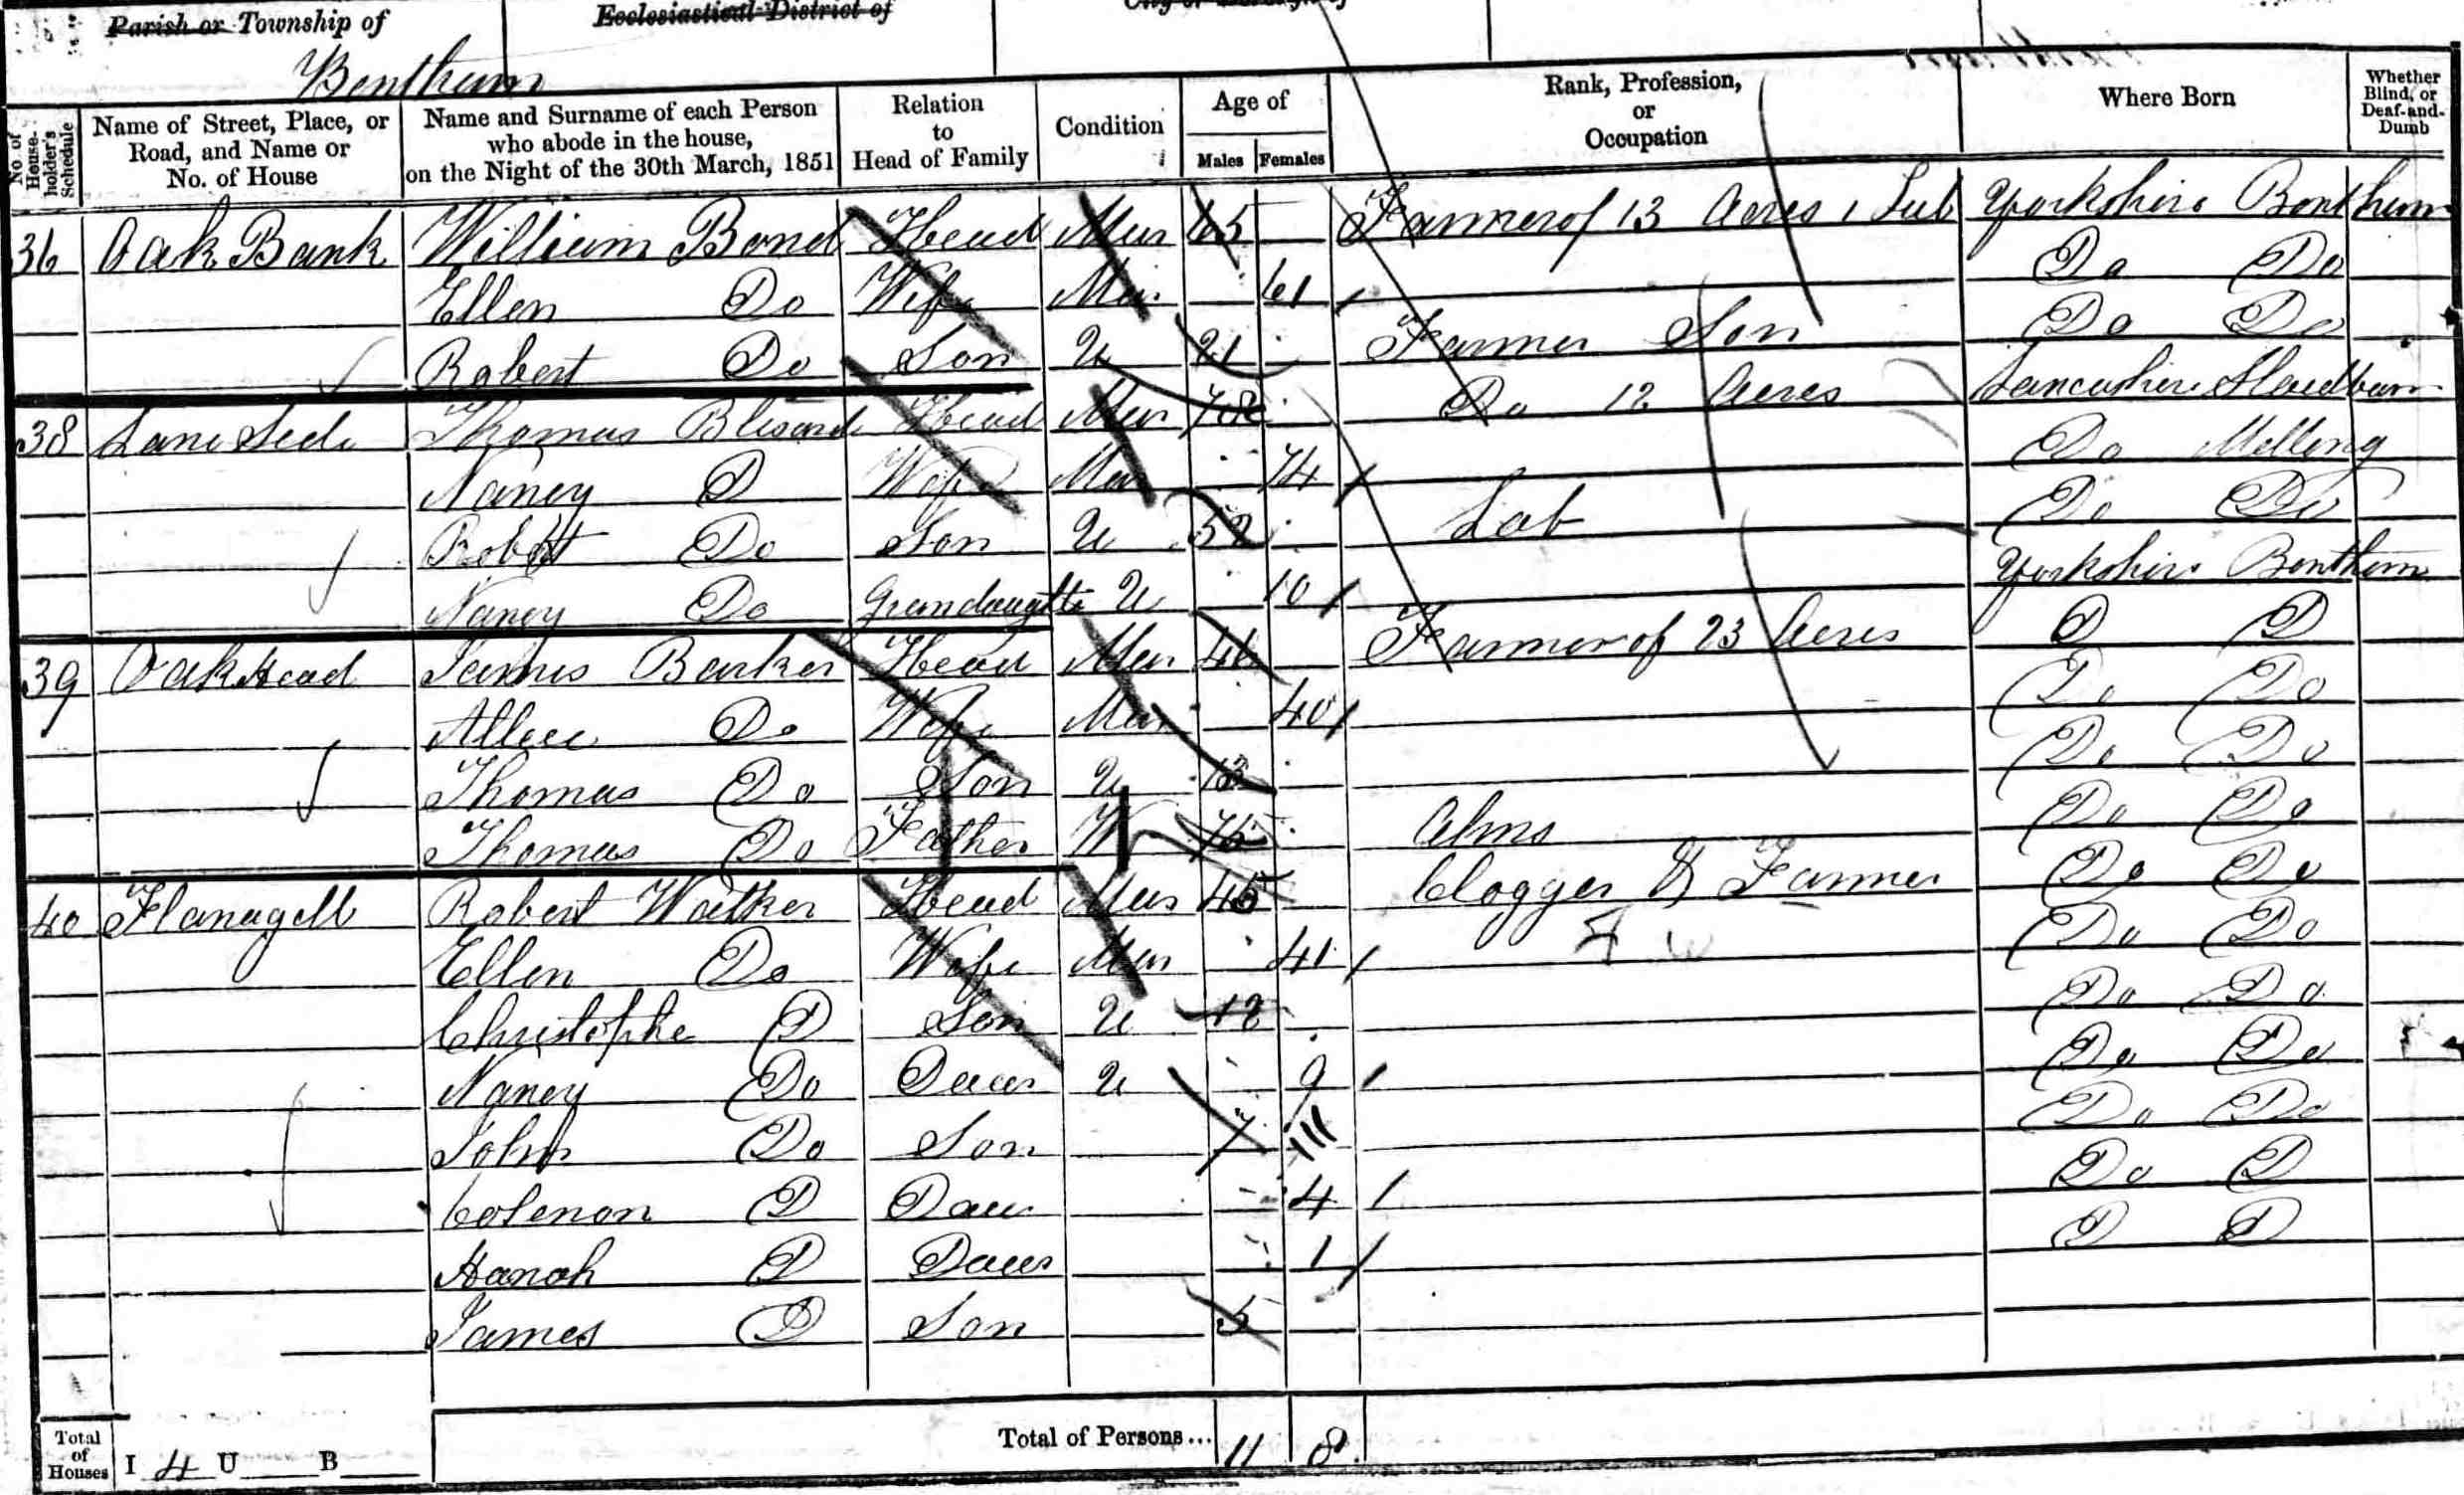 Parish or Township of Ecclesiastical District of City or Borough of
Bentham
No. of House-holder's Schedule
Name of Street, Place, or Road, and Name or No. of House
Name and Surname of each Person who abode in the house, on the Night of the 30th March, 1851
Relation to Head of Family
Condition
Age of
Males Females
Rank, Profession, or Occupation
Where Born
Whether Blind, or Deaf-and-Dumb
36 Oak Bank William Bond Head Mar 65 Farmer of 13 Acres 1 Lab Yorkshire Bentham
Ellen Do Wife Mar 61 Do Do
Robert Do Son U 21 Farmer Son Do Do
38 Lane Side Thomas Blesard Head Mar 78 Do 12 Acres Lancashire
Nancy D Wife Mar 74 Do Melling
Robert Do Son U 52 Lab Do Do
Nancy Do Grandaughte U 10 Yorkshire Bentham
39 Oak Head James Barker Head Mar 46 Farmer of 23 Acres D D
Allice Do Wife Mar 40 Do Do
Thomas Do Son U 13 Do Do
Thomas Do Father W 75 Alms Do Do
40 Flanagill Robert Walker Head Mar 45 Clogger & Farmer Do Do
Ellen Do Wife Mar 41 Do Do
Christophe D Son U 12 Do Do
Nancy Do Daur U 9 Do Do
John Do Son 7 Do Do
D Daur 4 Do D
Hanah D Daur 1 D D
James D Son 5
Total of Houses I 4 U B
Total of Persons... 11 8